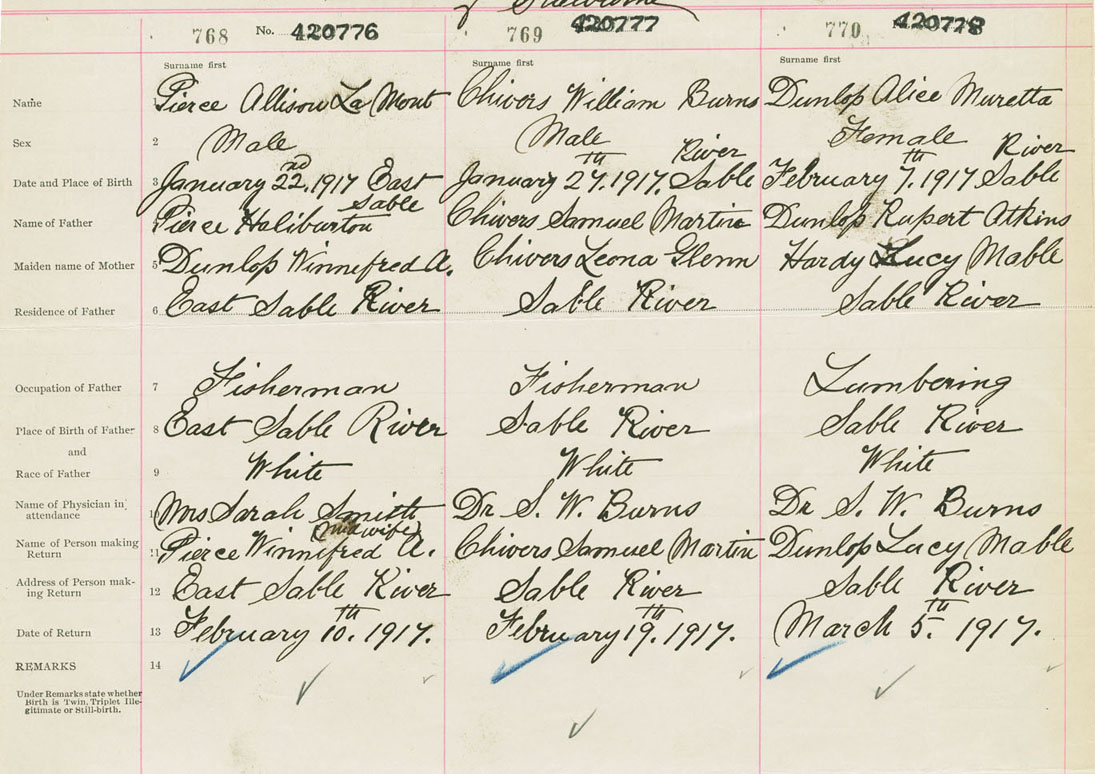 of Shelburne
768 No. 420776 769 420777 770 420778
Surname first Surname first Surname first
Name 1 Pierce Allison La Mont Chivers William Burns Dunlop Alice Muretta
Sex 2 Male Male Female
Date and Place of Birth 3 January 22nd, 1917 East Sable January 27th. 1917. Sable River February 7th. 1917 Sable River
Name of Father Pierce Haliburton Chivers Samuel Martin Dunlop Rupert Atkins
Maiden name of Mother 5 Dunlop Winnefred A. Chivers Leona Glenn Hardy Lucy Mable
Residence of Father 6 East Sable River Sable River Sable River
Occupation of Father 7 Fisherman Fisherman Lumbering
Place of Birth of Father 8 East Sable River Sable River Sable River
and
Race of Father 9 White White White
Name of Physician in attendance 10 Mrs Sarah Smith (midwife) Dr S. W. Burns Dr S. W. Burns
Name of Person making Return 11 Pierce Winnifred A. Chivers Samuel Martin Dunlop Lucy Mable
Address of Person making Return 12 East Sable River Sable River Sable River
Date of Return 13 February 10th. 1917. February 19th. 1917. March 5th. 1917.
REMARKS 14
Under Remarks state whether
Birth is Twin, Triplet Ille-
gitimate or Still-birth.